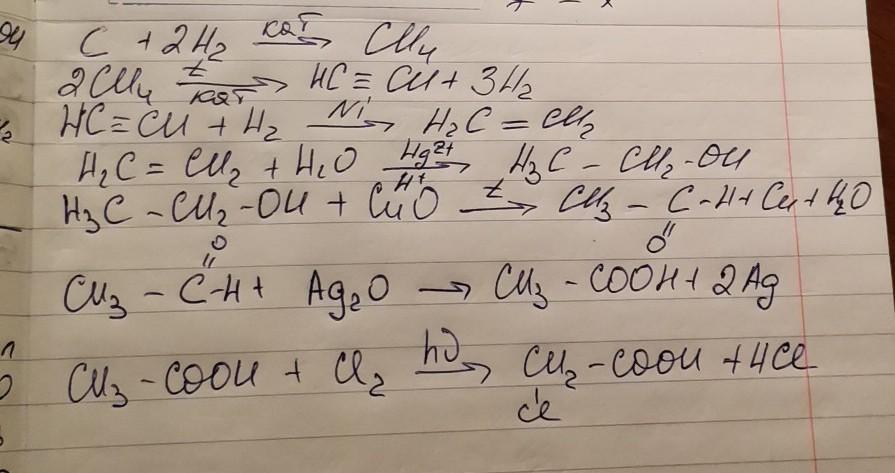 C + 2H₂ —кат→ CH₄
2CH₄ —t, кат→ HC ≡ CH + 3H₂
HC ≡ CH + H₂ —Ni→ H₂C = CH₂
H₂C = CH₂ + H₂O —Hg²⁺, H⁺→ H₃C – CH₂-OH
H₃C – CH₂-OH + CuO —t→ CH₃ – C(=O)-H + Cu + H₂O
CH₃ – C(=O)-H + Ag₂O → CH₃ – COOH + 2Ag
CH₃ – COOH + Cl₂ —hν→ CH₂(Cl) – COOH + HCl